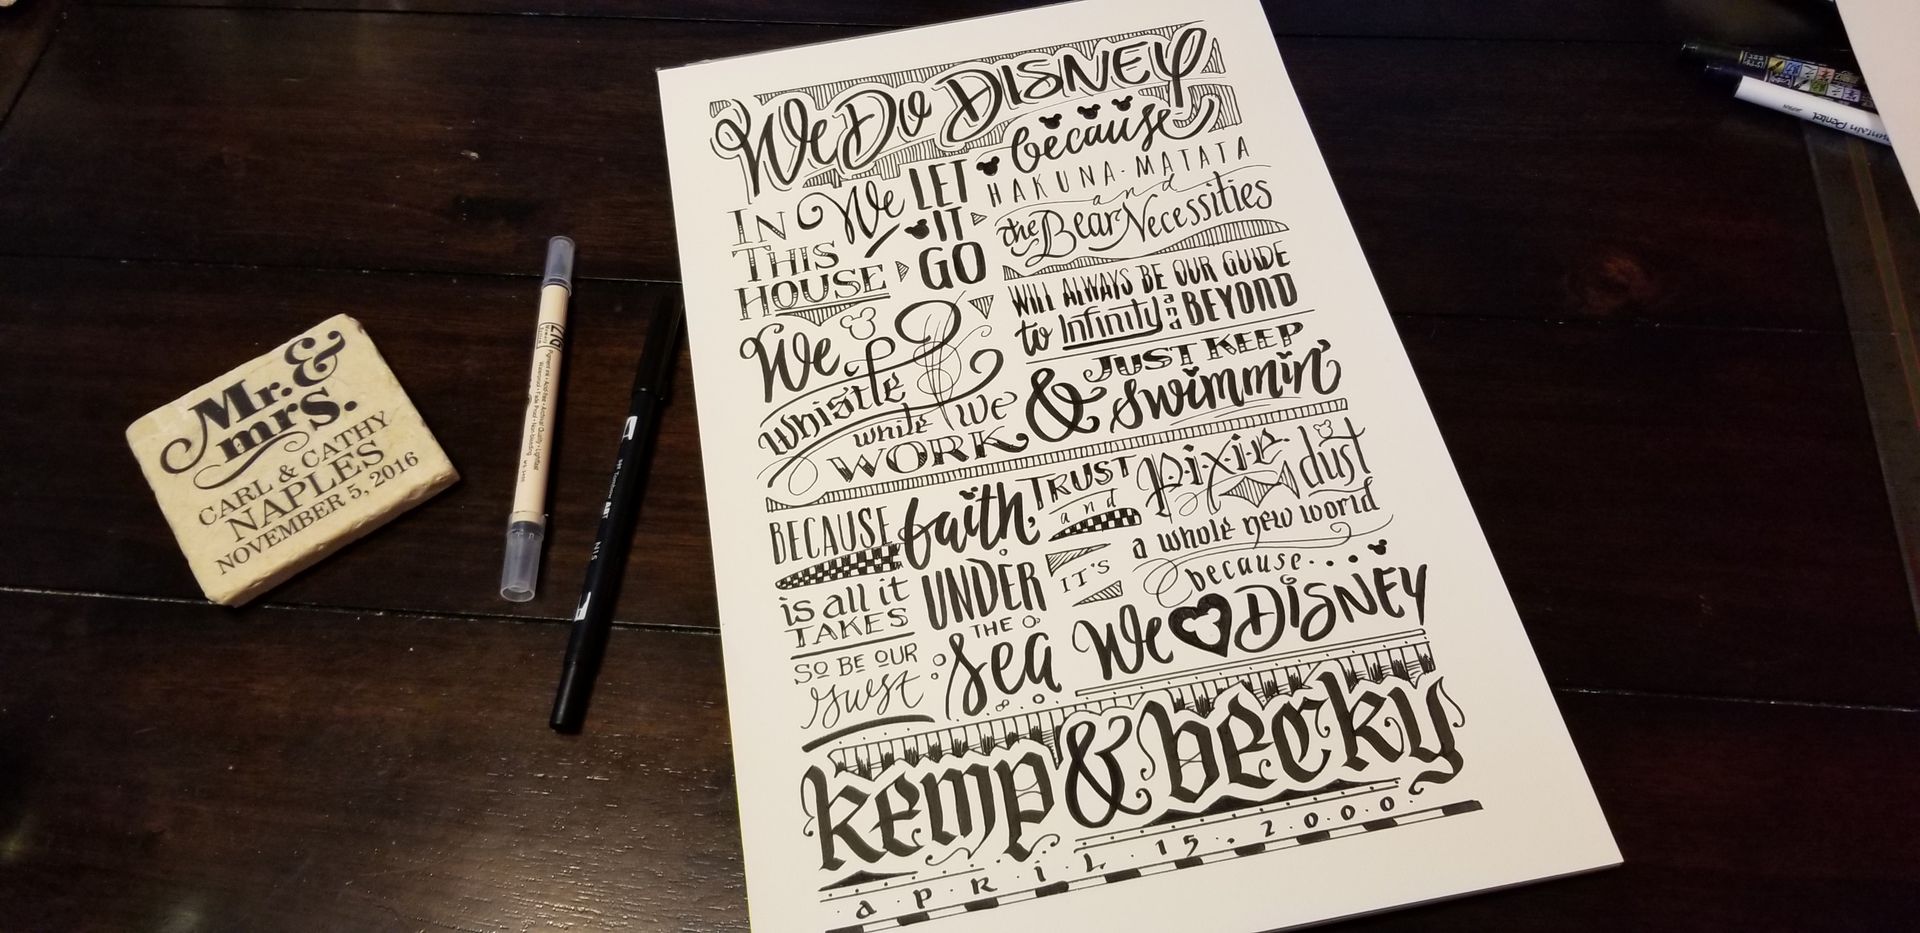 We Do DISNEY
because
HAKUNA-MATATA
and
the Bear Necessities
IN
THIS
HOUSE
We
LET
IT
GO
WILL ALWAYS BE OUR GUIDE
to Infinity and BEYOND
We
whistle
while we
WORK
& JUST KEEP
swimmin'
BECAUSE faith, TRUST
and
Pixie dust
is all it
TAKES
SO BE OUR
guest
UNDER
THE
sea
IT'S
a whole new world
because...
We DISNEY
kemp & becky
april 15. 2000
Mr. &
mrs.
CARL & CATHY
NAPLES
NOVEMBER 5, 2016
ZIG
Tombow
N15
Pentel